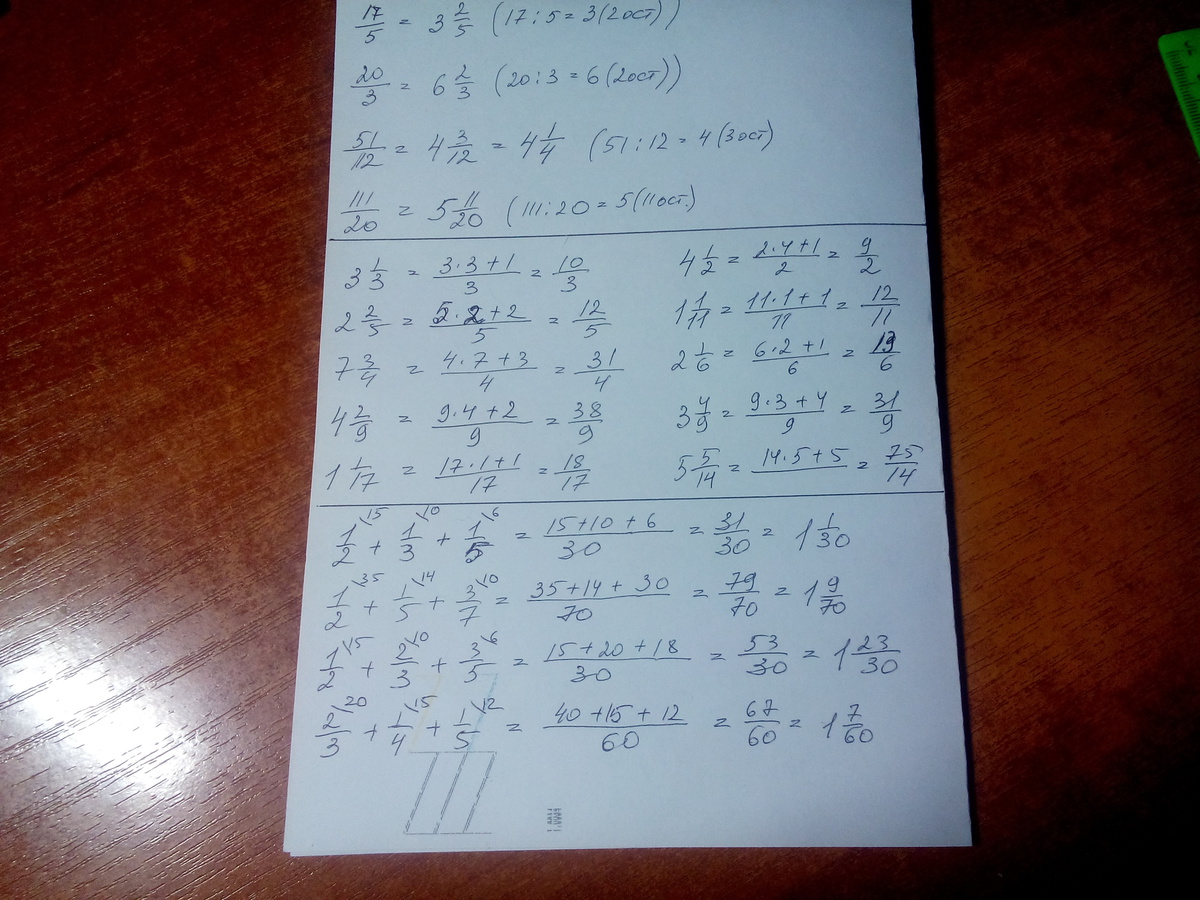 17/5 = 3 2/5 (17:5=3(2ост))
20/3 = 6 2/3 (20:3=6(2ост))
51/12 = 4 3/12 = 4 1/4 (51:12=4(3ост)
111/20 = 5 11/20 (111:20=5(11ост.)
3 1/3 = 3·3+1/3 = 10/3
2 2/5 = 5·2+2/5 = 12/5
7 3/4 = 4·7+3/4 = 31/4
4 2/9 = 9·4+2/9 = 38/9
1 1/17 = 17·1+1/17 = 18/17
4 1/2 = 2·4+1/2 = 9/2
1 1/11 = 11·1+1/11 = 12/11
2 1/6 = 6·2+1/6 = 13/6
3 4/9 = 9·3+4/9 = 31/9
5 5/14 = 14·5+5/ = 75/14
1/2\15 + 1/3\10 + 1/5\6 = 15+10+6/30 = 31/30 = 1 1/30
1/2\35 + 1/5\14 + 3/7\10 = 35+14+30/70 = 79/70 = 1 9/70
1/2\15 + 2/3\10 + 3/5\6 = 15+20+18/30 = 53/30 = 1 23/30
2/3\20 + 1/4\15 + 1/5\12 = 40+15+12/60 = 67/60 = 1 7/60